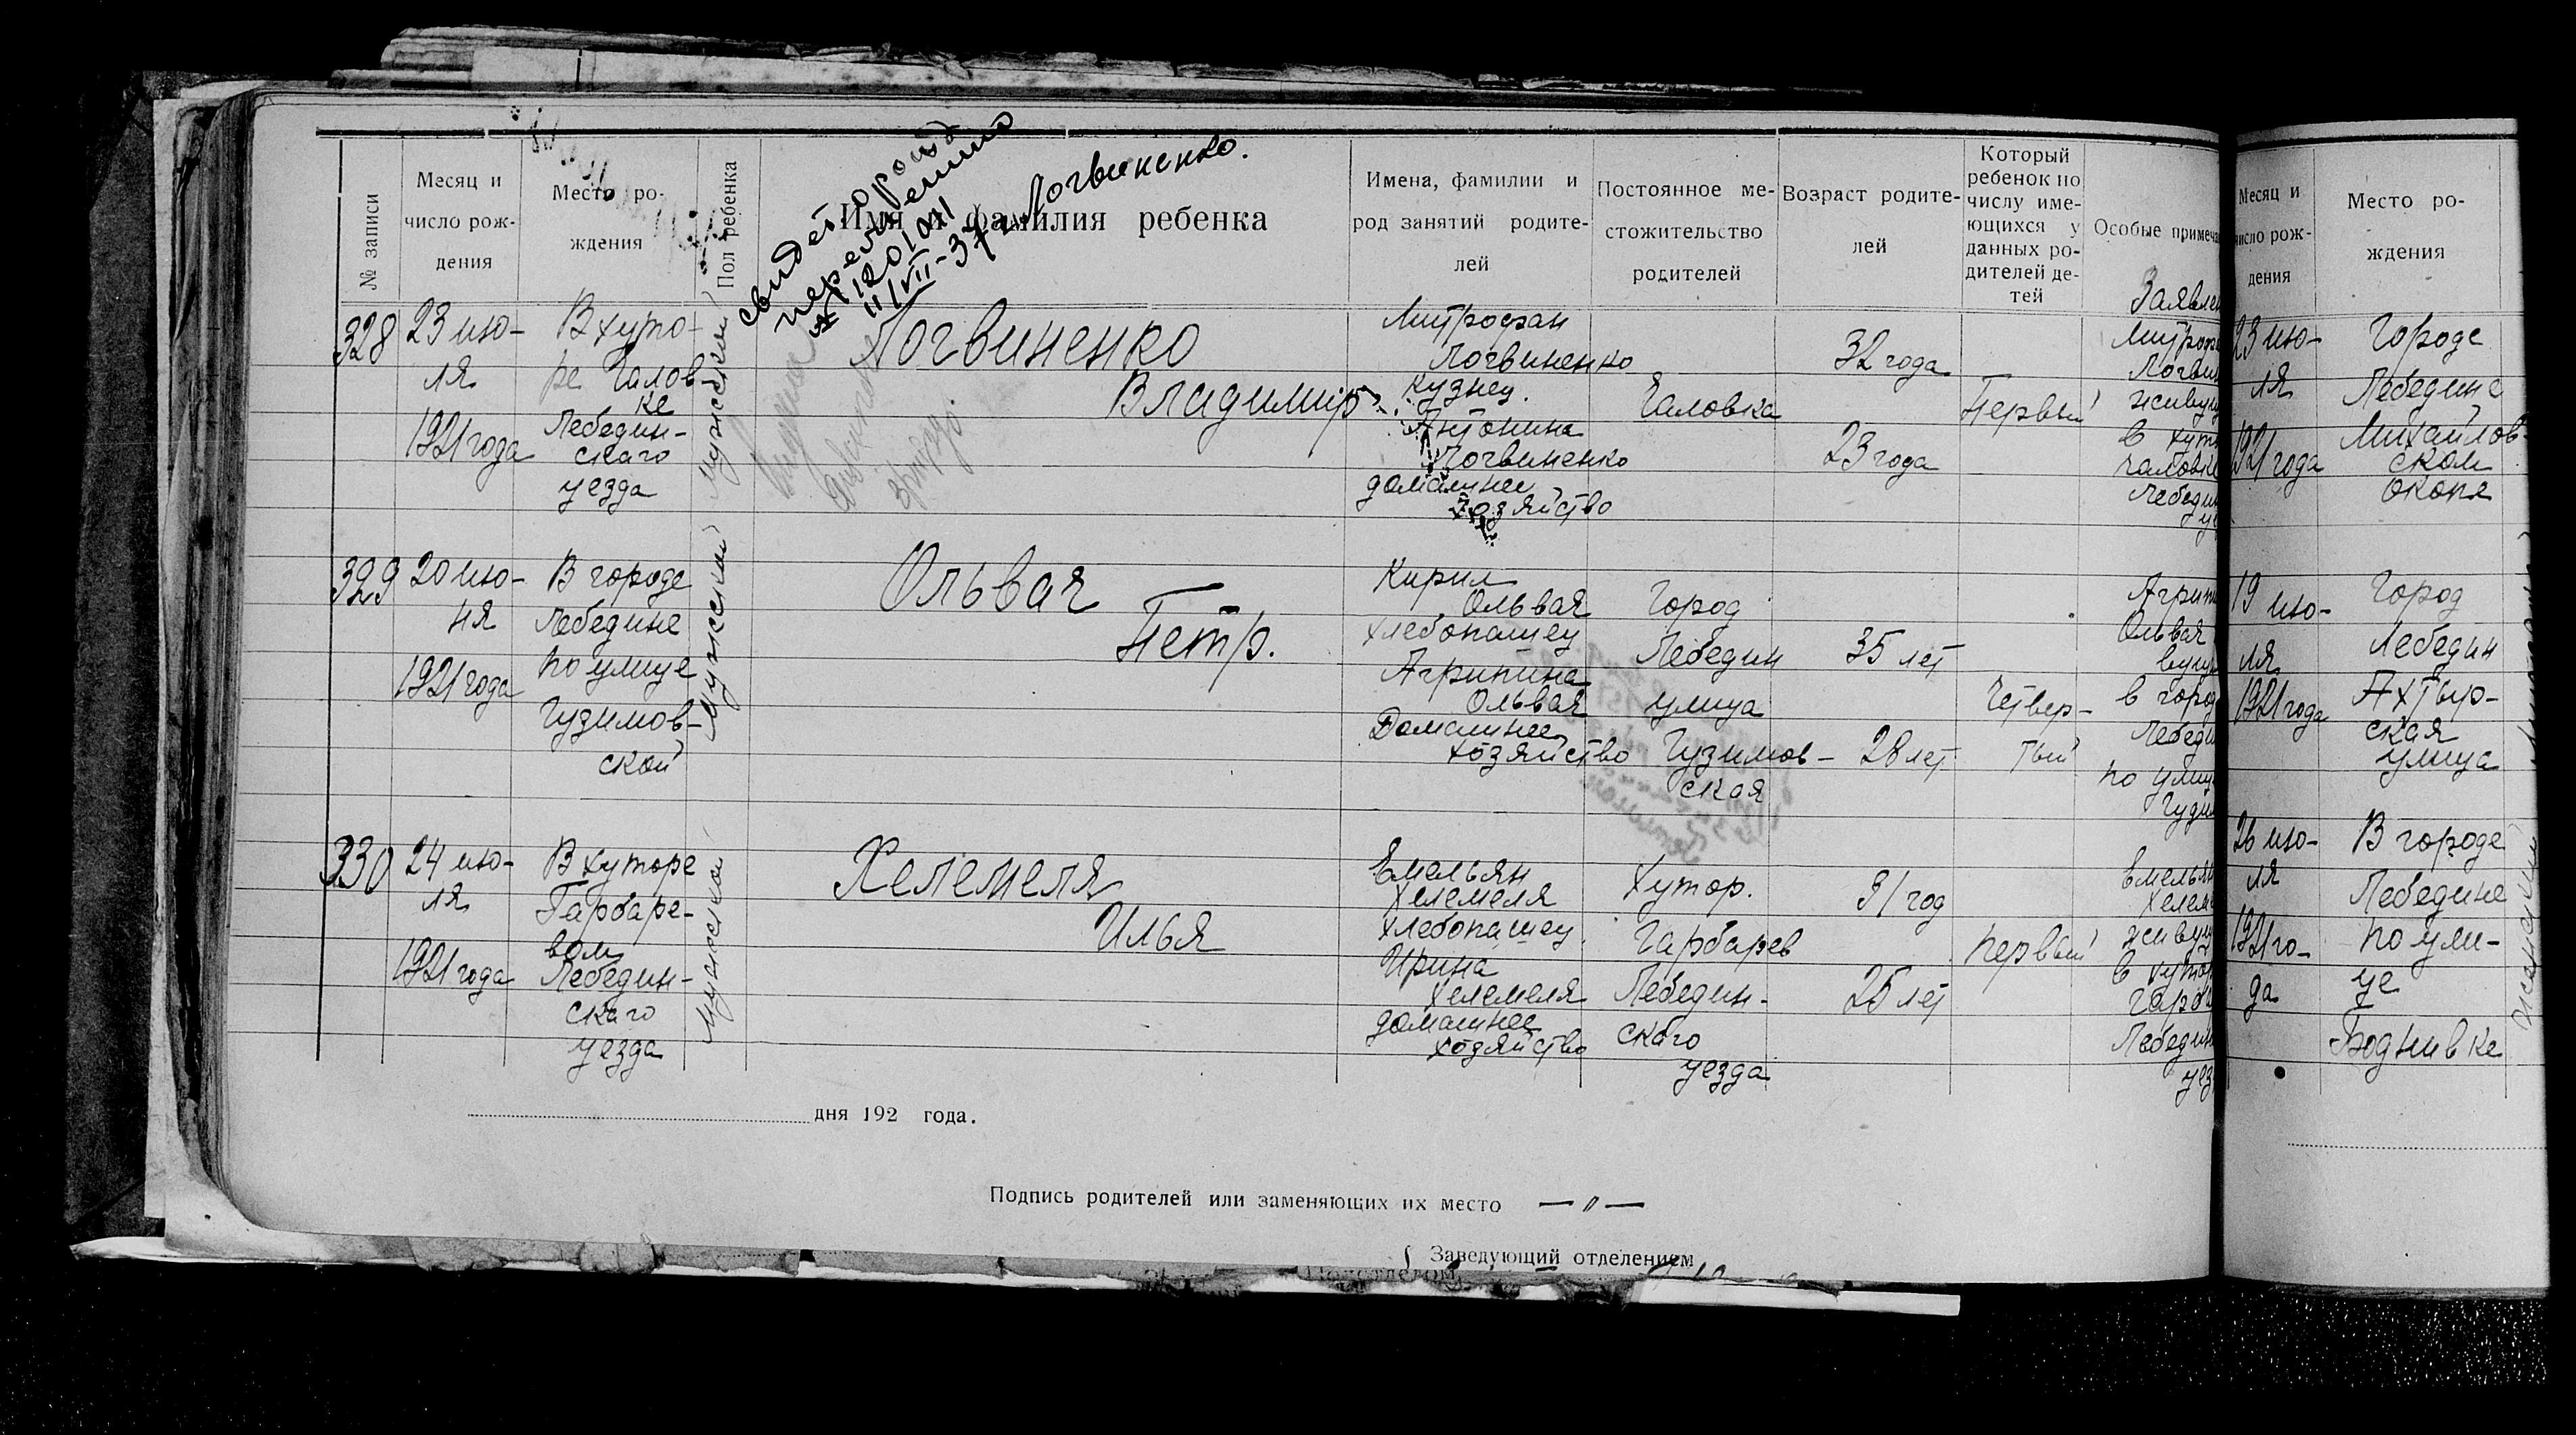 № записи
Месяц и
число рож-
дения
Место ро-
ждения
Пол ребенка
Имя и фамилия ребенка
Имена, фамилии и
род занятий родите-
лей
Постоянное ме-
стожительство
родителей
Возраст родите-
лей
Который
ребенок по
числу име-
ющихся у
данных ро-
дителей де-
тей
Особые примеча
свидет о рожд
II/VII-37 г. Логвиненко.
328
23 ию-
ля
1921 года
В хуто-
ре Чалов-
ке
Лебедин-
скаго
уезда
Мужской
Логвиненко
Владимир
Митрофан
Логвиненко
кузнец.
Антонина
Логвиненко
домашнее
хозяйство
Чаловка
32 года
23 года
Первый
Заявлен
Митроф
Логвин
живущ
в хут
Чаловке
Лебедин
уе
329
20 ию-
ня
1921 года
В городе
Лебедине
по улице
Гузимов-
ской
Мужский
Ольвач
Петр.
Кирил
Ольвач
хлебопашец
Агрипина
Ольвач
Домашнее
хозяйство
Город
Лебедин
улица
Гузимов-
ская
35 лет
28 лет
Четвер-
тый
Агрип
Ольвач
вущ
в горо
Лебеди
по улиц
330
24 ию-
ля
1921 года
В хуторе
Гарбаре-
вом
Лебедин-
скаго
уезда
Мужской
Хелемеля
Илья
Емельян
Хелемеля
хлебопашец
Ирина
Хелемеля
домашнее
хозяйство
Хутор.
Гарбарев
Лебедин-
скаго
уезда
31 год
25 лет
первый
Емельян
Хелем
живущ
в хутор
Гарба
Лебедин
уез
дня 192 года.
Подпись родителей или заменяющих их место —〃—
Заведующий отделением
Месяц и
число рож-
дения
Место ро-
ждения
23 ию-
ля
1921 года
Городе
Лебедине
Михайлов-
ском
19 ию-
ля
1921 года
Город
Лебедин
Ахтыр-
ская
улица
26 ию-
ля
1921 го-
да
В городе
Лебедине
по ули-
це